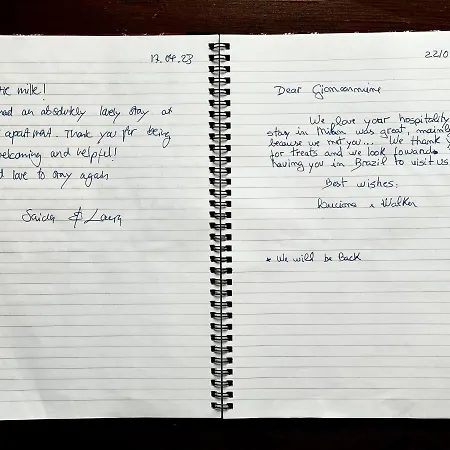 13.04.23
mille!
had an absolutely lovely stay at
apartment. Thank you for being
welcoming and helpful!
love to stay again.
Saida & Laura
22/0
Dear Giancarmine
We love your hospitality
stay in Milan was great, mainly
because we met you... We thank
for treats and we look foward
having you in Brazil to visit us
Best wishes:
Luciana & Walker
* We will be back